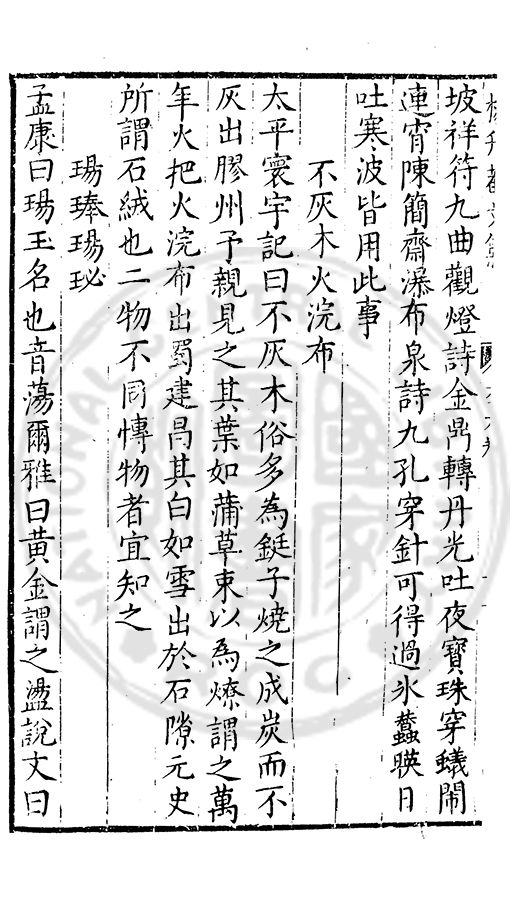 坡祥符九曲觀燈詩金鼎轉丹光吐夜寶珠穿蟻鬧
連宵陳簡齋瀑布泉詩九孔穿針可得過氷蠶暎日
吐寒波皆用此事
不灰木火浣布
太平寰宇記曰不灰木俗多為鋌子燒之成炭而不
灰出膠州予親見之其葉如蒲草束以為燎謂之萬
年火把火浣布出蜀建昌其白如雪出於石隙元史
所謂石絨也二物不同慱物者宜知之
瑒琫瑒珌
孟康曰瑒玉名也音蕩爾雅曰黃金謂之盪說文曰